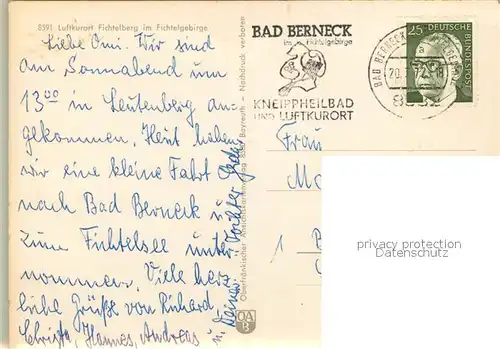 8591 Luftkurort Fichtelberg im Fichtelgebirge
Liebe Omi. Wir sind
am Sonnabend um
13⁰⁰ in Leutenberg an-
gekommen. Heut haben
wir eine kleine Fahrt
nach Bad Berneck u.
zum Fichtelsee unter-
nommen. Viele herz-
liche Grüße von Richard,
Christa, Hannes, Andreas
u. Deiner Tochter
Oberfränkischer Ansichtskartenverlag 8580 Bayreuth - Nachdruck verboten
OA
B
BAD BERNECK
im Fichtelgebirge
KNEIPPHEILBAD
UND LUFTKURORT
BAD BERNECK
25 DEUTSCHE
BUNDESPOST
Frau
1
privacy protection
Datenschutz